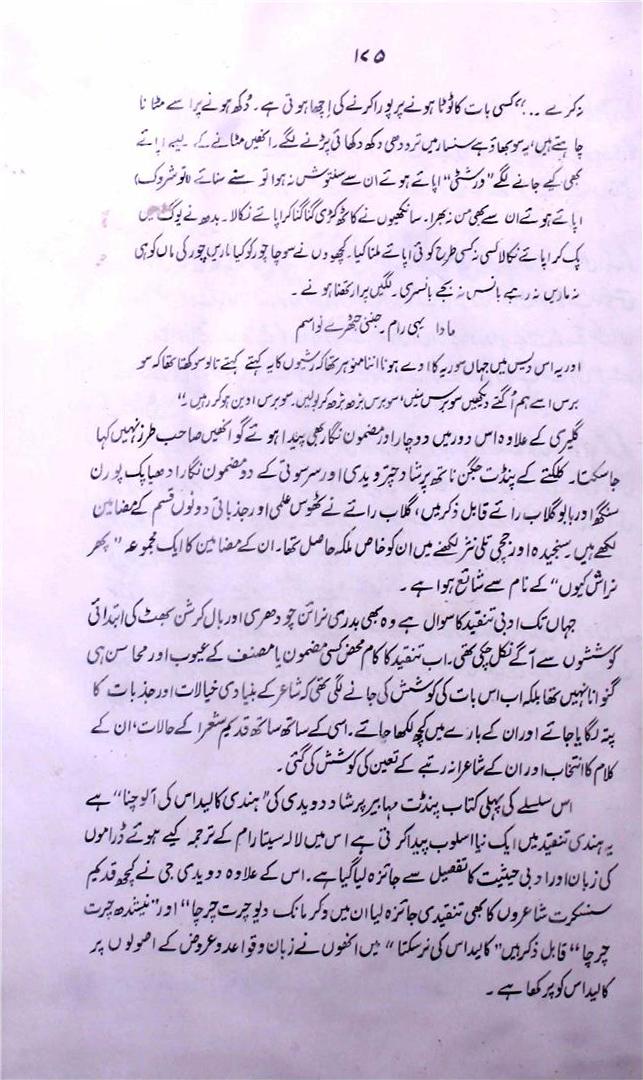 ۱۷۵
نہ کرے ۔۔" کسی بات کا ٹوٹا ہونے پر پورا کرنے کی اچھا ہوتی ہے۔ دُکھ ہونے پر اسے مٹانا
چاہتے ہیں، یہ سوبھاؤ ہے سنسار میں تردوھی دکھ دکھائی پڑنے لگے۔ انھیں مٹانے کے لیے اپائے
بھی کیے جانے لگے" ورشٹی" اپائے ہوئے ان سے سنتوش نہ ہوا تو سنے سنائے (نوشروک)
اپائے ہوئے ان سے بھی من نہ بھرا۔ سانکھیوں نے کاٹھ کڑی گنا گنا کر اپائے نکالا۔ بدھ نے یوگ میں
پک کر اپائے نکالا کسی نہ کسی طرح کوئی اپائے ملنا کیا۔ کچھوں نے سوچا چور کو کیا ماریں چور کی ماں کو ہی
نہ ماریں نہ رہے بانس نہ بجے بانسری۔ لگیں پرارتھنا ہونے۔
مادا یہی رام۔ جننی جٹھرے نواسم
اور یہ اس دیس میں جہاں سوریہ کا ادے ہونا اتنا منوہر تھا کہ رشیوں کا یہ کہتے کہتے تالو سوکھتا تھا کہ سو
برس اسے ہم اُگتے دیکھیں سو برس سنیں، سو برس بڑھ بڑھ کر بولیں۔ سو برس ادین ہو کر رہیں۔"
گلیری کے علاوہ اس دور میں دوچار اور مضمون نگار بھی پیدا ہوئے گو انھیں صاحب طرز نہیں کہا
جا سکتا۔ کلکتے کے پنڈت جگن ناتھ پرشاد چترویدی اور سرسوتی کے دو مضمون نگار ادھیاپک پورن
سنگھ اور بابو گلاب رائے قابل ذکر ہیں، گلاب رائے نے ٹھوس علمی اور جذباتی دونوں قسم کے مضامین
لکھے ہیں۔ سنجیدہ اور جچی تلی نثر لکھنے میں ان کو خاص ملکہ حاصل تھا۔ ان کے مضامین کا ایک مجموعہ "پھر
نراش کیوں" کے نام سے شائع ہوا ہے۔
جہاں تک ادبی تنقید کا سوال ہے وہ بھی بدری نرائن چودھری اور بال کرشن بھٹ کی ابتدائی
کوششوں سے آگے نکل چکی تھی۔ اب تنقید کا کام محض کسی مضمون یا مصنف کے عیوب اور محاسن ہی
گنوانا نہیں تھا بلکہ اب اس بات کی کوشش کی جانے لگی تھی کہ شاعر کے بنیادی خیالات اور جذبات کا
پتہ لگایا جائے اور ان کے بارے میں کچھ لکھا جائے۔ اسی کے ساتھ ساتھ قدیم شعرا کے حالات، ان کے
کلام کا انتخاب اور ان کے شاعرانہ رتبے کے تعین کی کوشش کی گئی۔
اس سلسلے کی پہلی کتاب پنڈت مہابیر پرشاد دویدی کی "ہندی کالیداس کی آلوچنا" ہے
یہ ہندی تنقید میں ایک نیا اسلوب پیدا کرتی ہے اس میں لالہ سیتا رام کے ترجمہ کیے ہوئے ڈراموں
کی زبان اور ادبی حیثیت کا تفصیل سے جائزہ لیا گیا ہے۔ اس کے علاوہ دویدی جی نے کچھ قدیم
سنسکرت شاعروں کا بھی تنقیدی جائزہ لیا ان میں وکرمانک دیو چرت چرچا" اور "نیشدھ چرت
چرچا" قابل ذکر ہیں" کالیداس کی نرسکتا" میں انھوں نے زبان و قواعد و عروض کے اصولوں پر
کالیداس کو پرکھا ہے۔